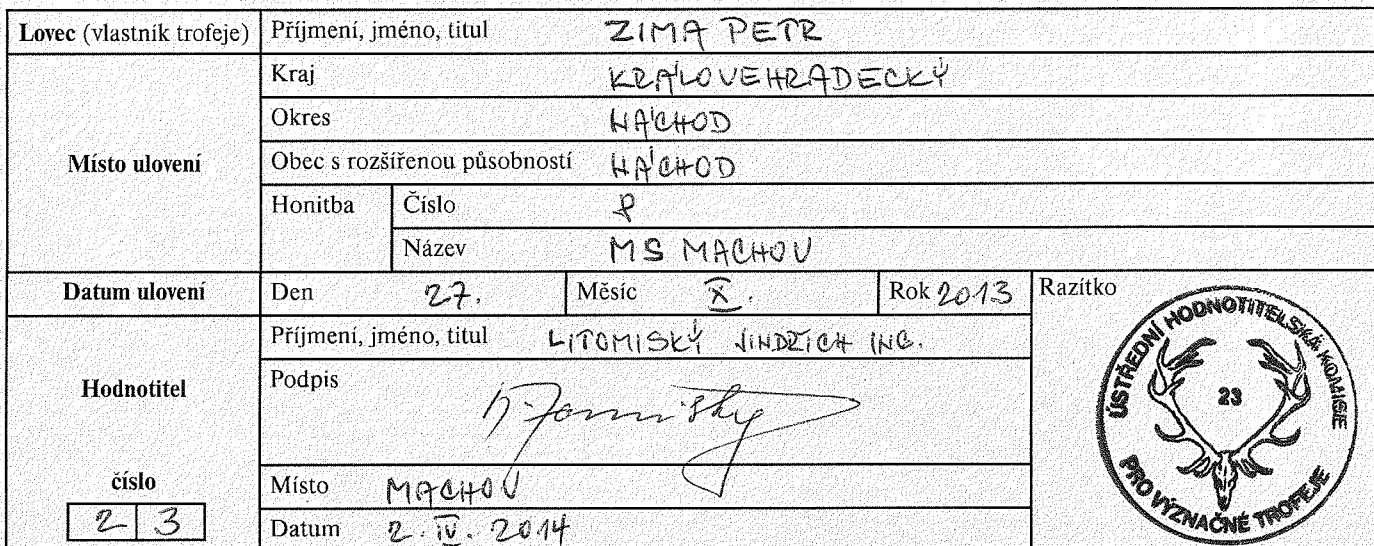 Lovec (vlastník trofeje) Příjmení, jméno, titul ZIMA PETR
Místo ulovení
Kraj KRÁLOVEHRADECKÝ
Okres NÁCHOD
Obec s rozšířenou působností NÁCHOD
Honitba Číslo
Název MS MACHOV
Datum ulovení Den 27. Měsíc X. Rok 2013 Razítko
Hodnotitel
Příjmení, jméno, titul LITOMISKÝ JINDŘICH ING.
Podpis
číslo
2 3
Místo MACHOV
Datum 2. IV. 2014
ÚSTŘEDNÍ HODNOTITELSKÁ KOMISE
23
PRO VÝZNAČNÉ TROFEJE